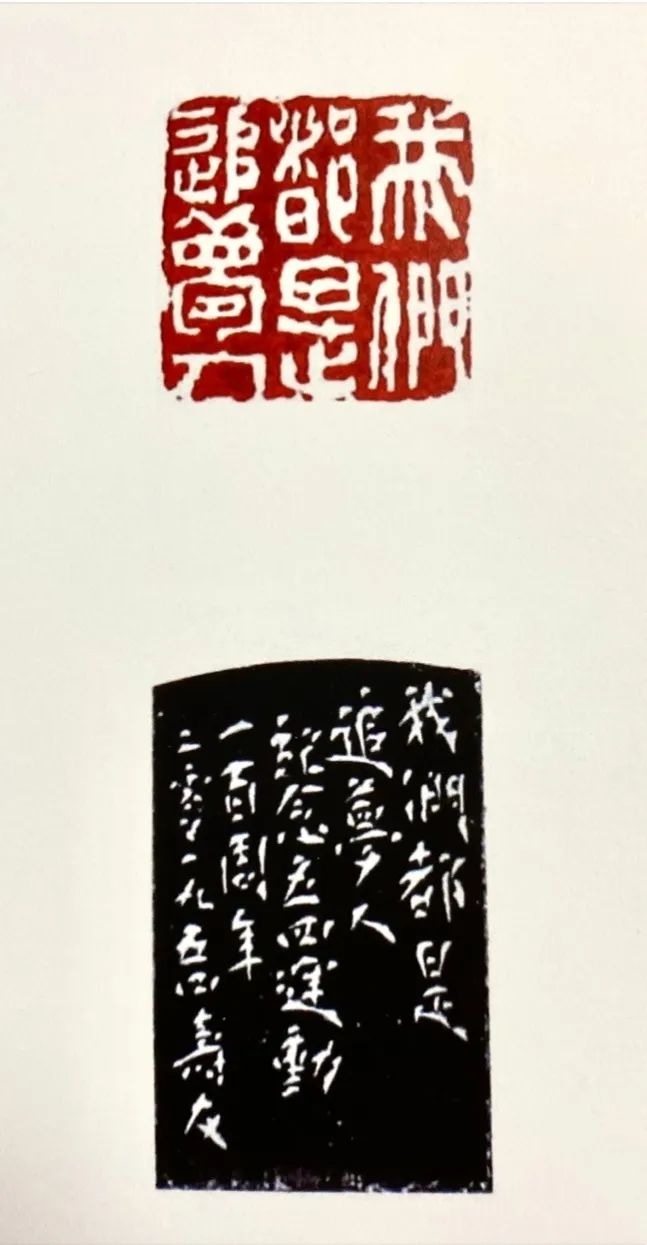 我們
都是
追夢人
我們都是
追夢人
紀念五四運動
一百周年
二零一九五四壽石